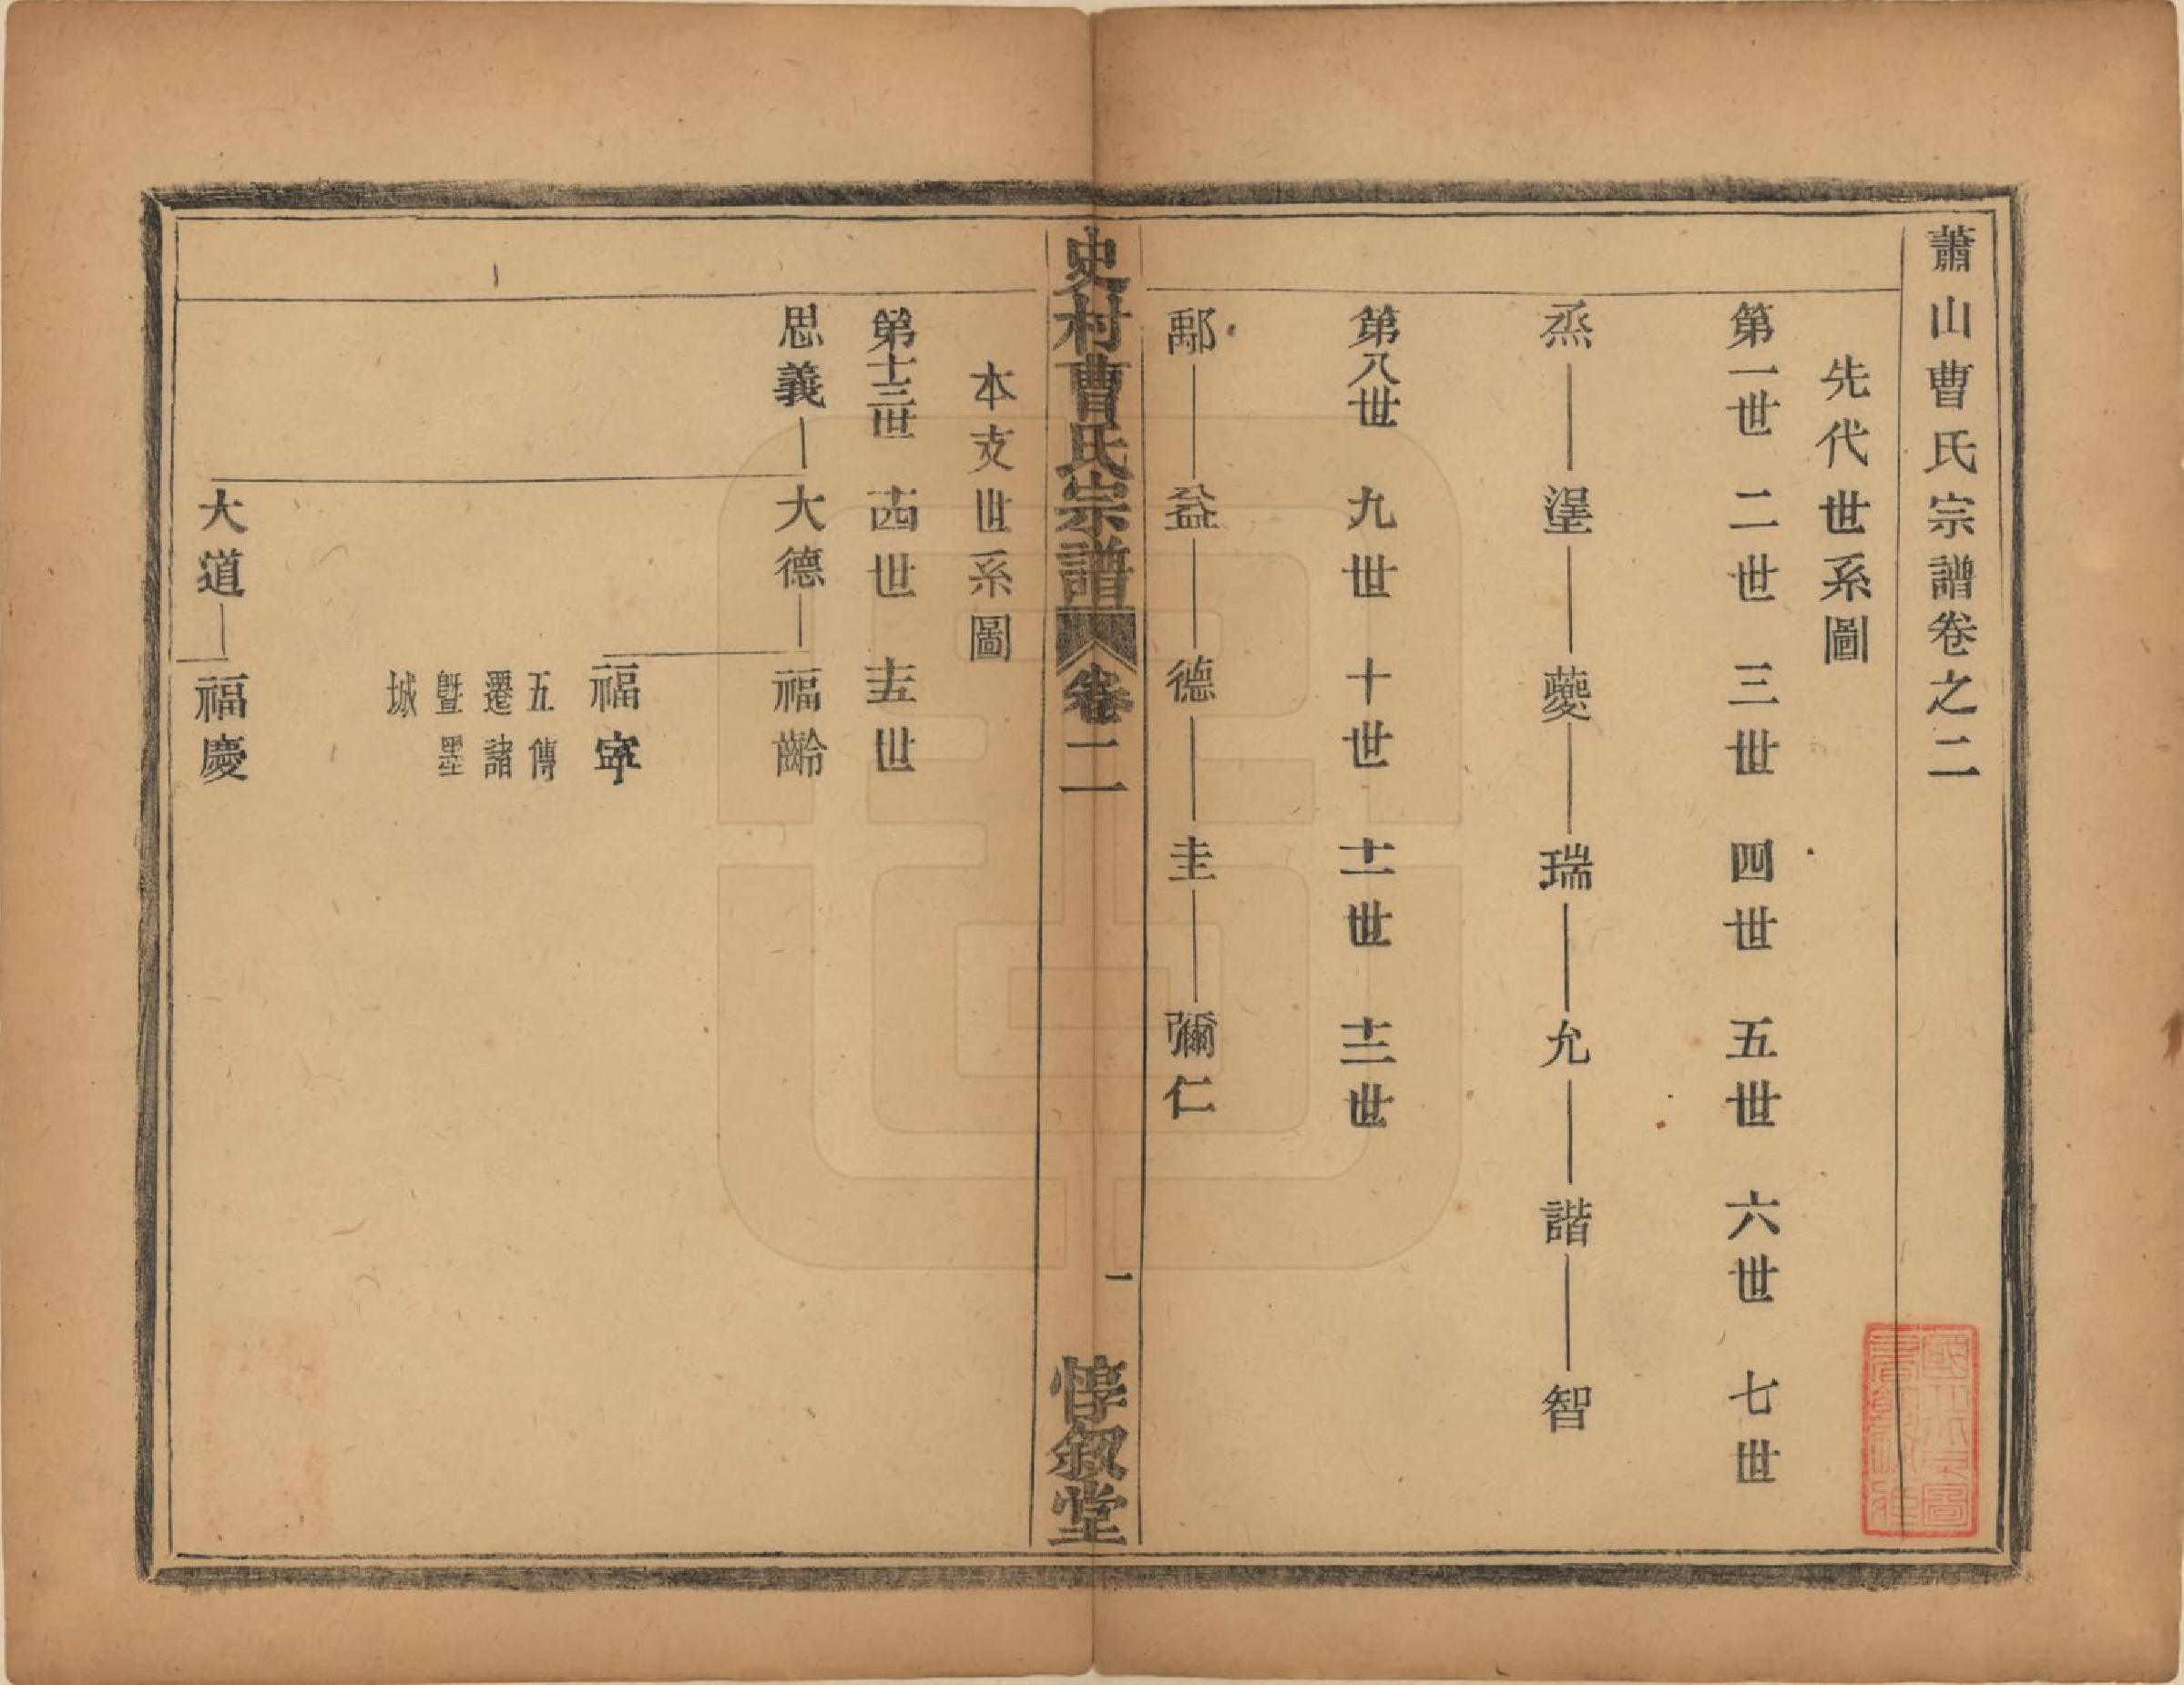 蕭山曹氏宗譜卷之二
先代世系圖
第一世 二世 三世 四世 五世 六世 七世
烝 湦 夔 瑞 允 諧 智
第八世 九世 十世 十一世 十二世
鄢 益 德 圭 彌仁
史村曹氏宗譜 卷二 一 惇叙堂
本支世系圖
第十三世 十四世 十五世
思義 大德 福齡
福寧
五傳
遷諸
暨墨
城
大道 福慶